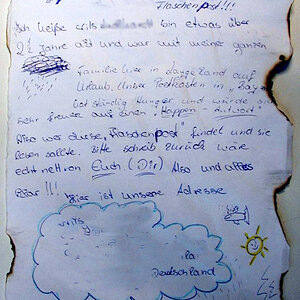 Flaschenpost!!!
Ich heiße Nils bin etwas über
2½ Jahre alt und war mit meiner ganzen
Familie hier in Langeland auf
Urlaub. Unser Postkasten in
ständig Hunger und würde
sehr freuen auf einen "Happen-Antwort"
Also wer diese "Flaschenpost" findet und sie
lesen sollte. Bitte schreib zurück wäre
echt nett von Euch (Dir) Also und alles
klar!!! Hier ist unsere Adresse
Nils
Deutschland